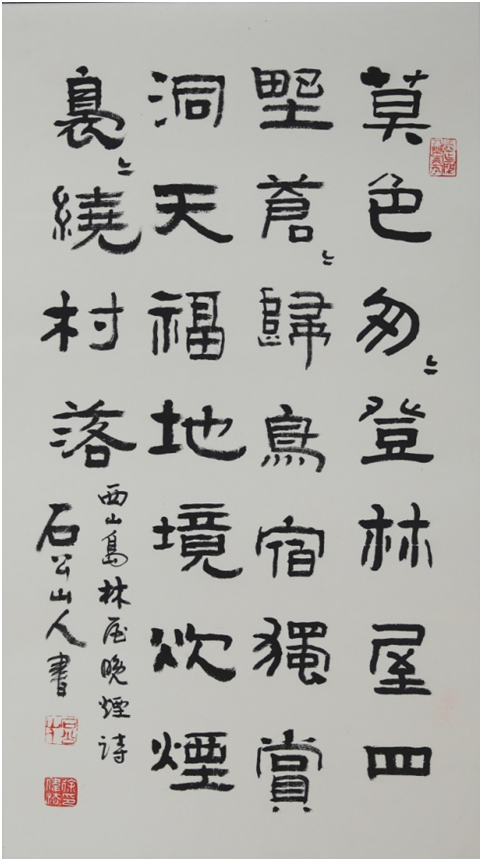 莫色匆〻登林屋四
野蒼〻歸鳥宿獨賞
洞天福地境炊煙
裊〻繞村落
西山島林屋晚煙詩
石公山人書